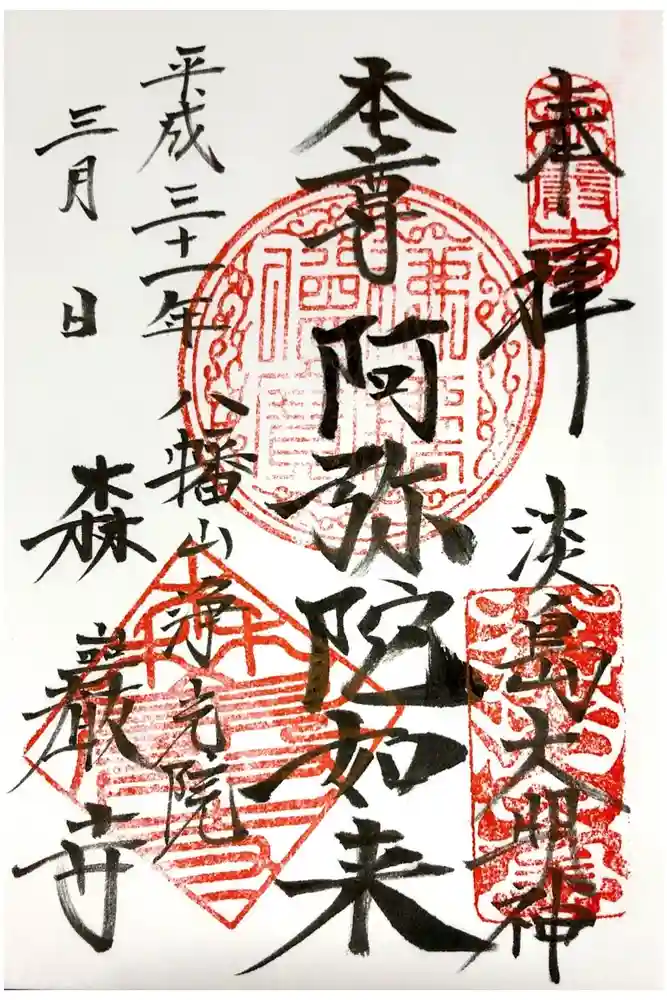 奉拝
淡島大明神
本尊阿弥陀如来
八幡山浄光院
平成三十一年
三月 日
森巌寺